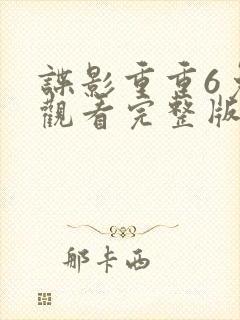 諜影重重6
觀看完整版
那卡西